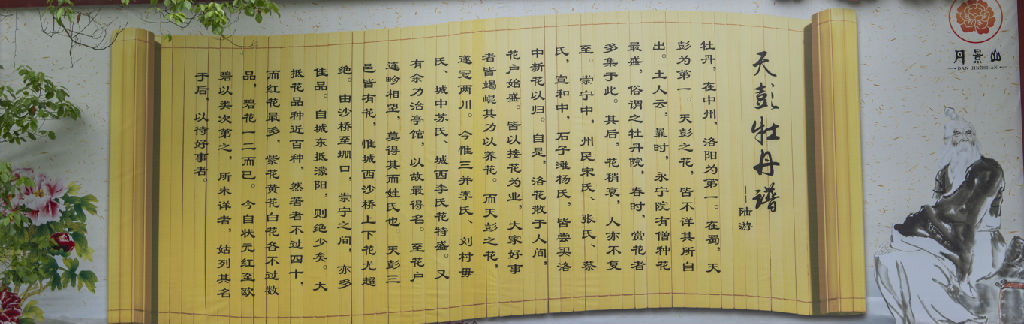 天彭牡丹谱
——陆游
牡丹，在中州，洛阳为第一。在蜀，天
彭为第一。天彭之花，皆不详其所自
出。土人云：曩时，永宁院有僧种花
最盛，俗谓之牡丹院，春时，赏花者
多集于此。其后，花稍衰，人亦不复
至。崇宁中，州民宋氏、张氏、蔡
氏，宣和中，石子滩杨氏，皆尝买洛
中新花以归。自是，洛花散于人间，
花户始盛。皆以接花为业，大家好事
者皆竭崐其力以养花。而天彭之花，
遂冠两川。今惟三井李氏、刘村毋
氏、城中苏氏、城西李氏花特盛。又
有余力治亭馆，以故最得名。至花户
连畛相望，莫得其而姓氏也 天彭三
邑皆有花，惟城西沙桥上下花尤超
绝。由沙桥至堋口，崇宁之间，亦多
佳品。自城东抵濛阳，则绝少矣。大
抵花品种近百种，然著者不过四十，
而红花最多，紫花黄花白花各不过数
品，碧花一二而已。今自状元红至欧
碧以类次第之，所未详者，姑列其名
于后，以待好事者。
丹景山
DAN JINGSHAN